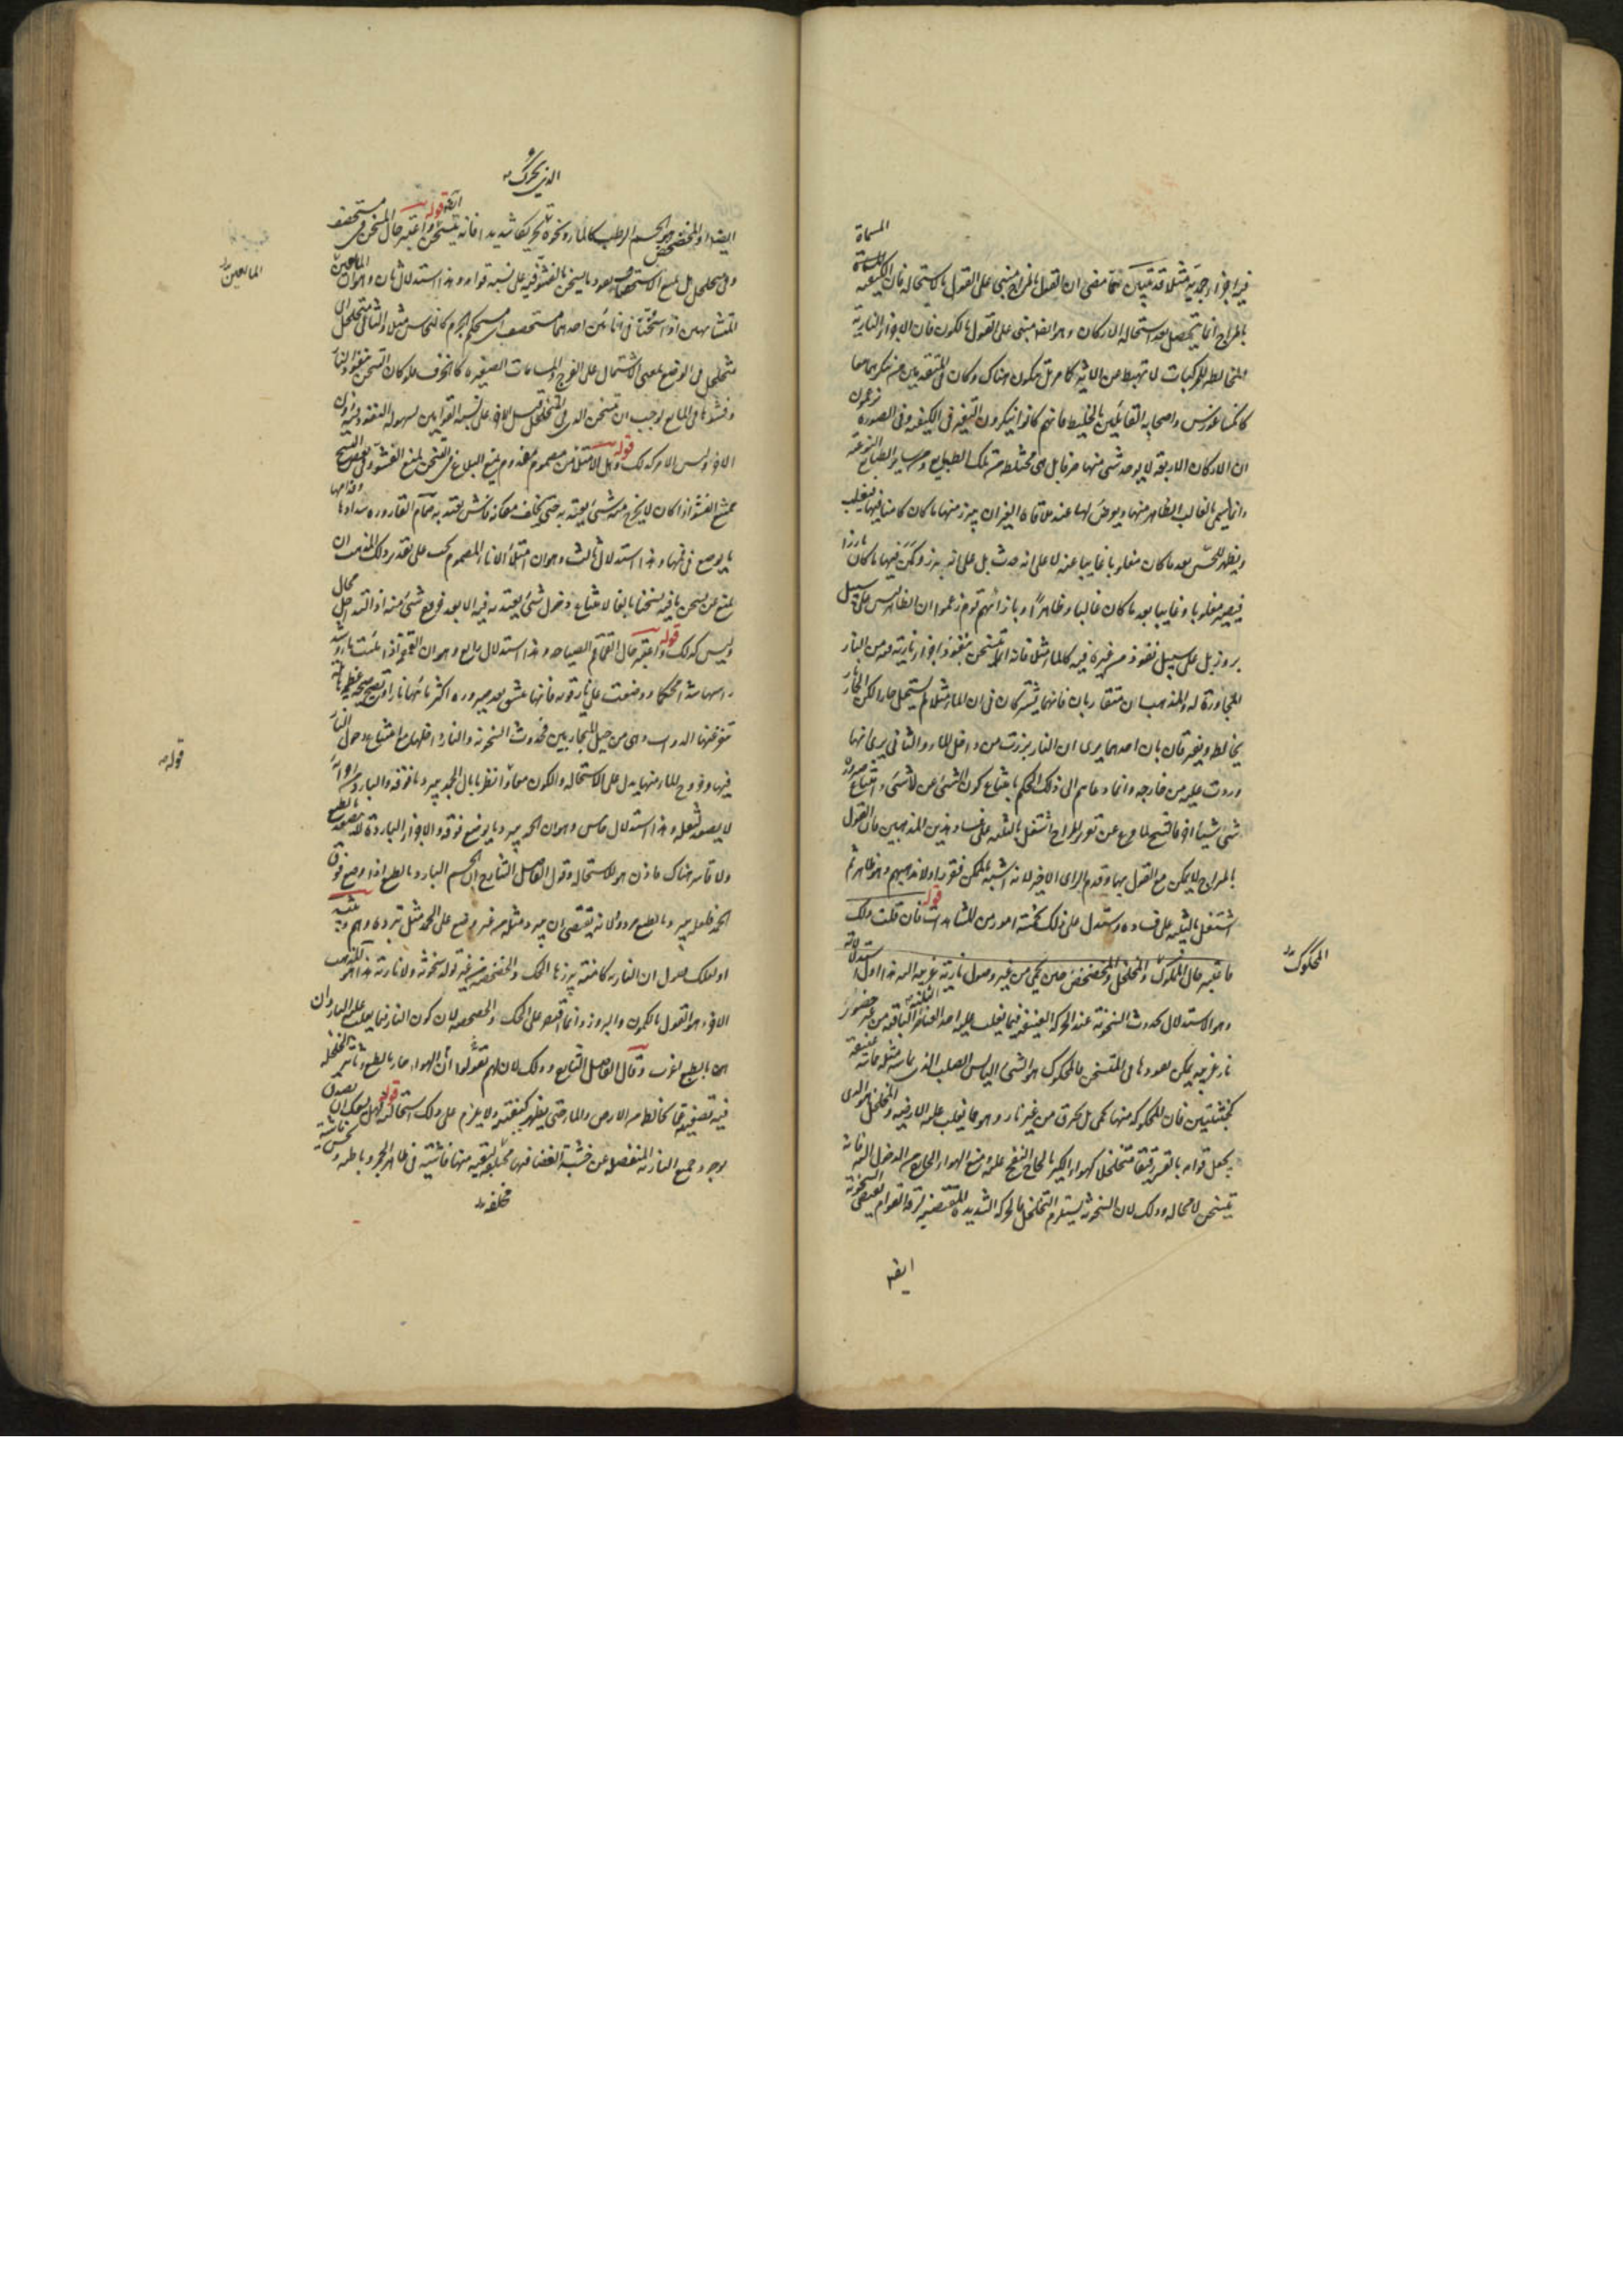 المسماة
فيه اجزاء حديدية مثلا قد تبين مما مضى ان القول بالمزاج مبنى على القول بالاستحالة فان الكيفية
بالمزاج انما تحصل بعد استحالة الاركان وهو ايضا مبنى على القول بالكون فان الاجزاء النارية
المخالطة للمركبات لا تهبط من الاثير كما مر بل تتكون هناك وكان فى المتقدمين من ينكرهما معا
كانكساغورس واصحابه القائلين بالخليط فانهم كانوا ينكرون التغير فى الكيفية وفى الصورة ويزعمون
ان الاركان الاربعة لا يوجد شئ منها صرفا بل هى مختلطة من تلك الطبايع ومن ساير الطبايع النوعية
وانما يسمى بالغالب الظاهر منها ويعرض لها عند ملاقاة الغير ان يبرز منها ما كان كامنا فيها فيغلب
ويظهر للحس بعد ما كان مغلوبا غايبا عنه لا على انه حدث بل على انه برز وكمن فيها ما كان بارزا
فيصير مغلوبا وغايبا بعد ما كان غالبا وظاهرا وبازائهم قوم زعموا ان الظاهر ليس على سبيل
بروز بل على سبيل نفوذ من غيره فيه كالماء مثلا فانه انما يتسخن بنفوذ اجزاء نارية فيه من النار
المجاورة له والمذهبان متقاربان فانهما يشتركان فى ان الماء مثلا لم يستحل حارا لكن الحار
يخالطه ويفترقان بان احدهما يرى ان النار برزت من داخل الماء والثانى يرى انها
وردت عليه من خارجه وانما دعاهم الى ذلك الحكم بامتناع كون الشئ عن لا شئ وامتناع صيرورة
شئ شيئا اخر فالشيخ لما فرغ عن تقرير المزاج اشتغل بالتنبيه على فساد هذين المذهبين فان القول
بالمزاج لا يمكن مع القول بهما وقدم الراى الاخير لانه اشبه بالممكن فقرر اولا مذهبهم وهو ظاهر ثم
اشتغل بالتنبيه على فساده واستدل على ذلك بخمسة امور من المشاهدات قوله فان قلت ذلك
فاعتبر حال المحكوك والمخلخل والمخضخض حين يحمى من غير وصول نارية غريبة اليه هذا اول استدلالاته
وهو الاستدلال بحدوث السخونة عند الحركة العنيفة فيما يغلب عليه احد العناصر الثلثة الباقية من غير حضور
نار غريبة يمكن نفوذها فى المتسخن فالمحكوك هو الشئ اليابس الصلب الذى يماسه مثله مماسة عنيفة
كخشبتين فان المحكوكة منهما تحمى بل تحرق من غير نار وهو مما يغلب عليه الارضية والمخلخل هو الذى
يجعل قوامه بالقسر رقيقا متخلخلا كهواء الكير بالحاح النفخ عليه ومنع الهواء الخارج من الدخول اليه فانه
يتسخن لا محالة وذلك لان السخونة يستلزم التخلخل فالحركة الشديدة المقتضية لرقة القوام يقتضى السخونة
ايضه
المحكوك
الذى يحرك
ايضا والمخضخض هو الجسم الرطب كالماء ونحوه تحريكا شديدا فانه يتسخن ايضه قوله واعتبر حال المسخن فى مستحصف
وفى متخلخل هل يمنع الاستحصاف نفوذ ما يسخن بالفشو فيه على نسبة قوامه هذا استدلال ثان وهو ان المايعين
المتشابهين اذا سخنا فى انائين احدهما مستحصف اى مستحكم الجرم كالنحاس مثلا والثانى متخلخل اى
متخلخل فى الوضع بمعنى الاشتمال على الفرج والمسامات الصغيرة كالخزف فلو كان التسخن بنفوذ النار
وفشوها فى المايع لوجب ان يتسخن الذى فى المتخلخل قبل الاخر على نسبة القوامين لسهولة النفوذ فيه دون
الاخر وليس الامر كذلك قوله وهل الامتلاء من مصموم مفدوم يمنع البلاغ فى التسخن لمنع الفشو فى
يمتنع الفشو اذا كان لا يخرج منه شئ يعتد به حتى يخلف مكانه فاش يعتد به صمام القارورة سدادها وفدامها
ما يوضع فى فمها وهذا استدلال ثالث وهو ان امتلاء الاناء المصموم يجب على تقدير ذلك المذهب ان
يمنع عن تسخن ما فيه تسخنا بالغا لامتناع دخول شئ يعتد به فيه الا بعد خروج شئ منه اذ التداخل محال
وليس كذلك قوله واعتبر حال القماقم الصياحة هذا استدلال رابع وهو ان القمقمة اذا ملئت ماء وشد
راسها شدا محكما ووضعت على نار قوية فانها تنشق بعد صيرورة اكثر مائها نارا وتصيح صيحة عظيمة هائلة
تنفر عنها الدواب وهى من حيل المحاربين فحدوث السخونة والنار داخلها مع امتناع دخول النار
فيها وخروج الماء منها يدل على الاستحالة والكون معا قوله وانظر ما بال الجمد يبرد ما فوقه والبارد من اجزائه
لا يصعد لثقله هذا استدلال خامس وهو ان الجمد يبرد ما يوضع فوقه والاجزاء الباردة لا تصعد بالطبع
ولا قاسر هناك فاذن هو للاستحالة وقول الفاضل الشارح ان الجسم البارد بالطبع اذا وضع فوق
الجمد فلعله يبرد بالطبع مردود لانه يقتضى ان يبرد مثله من غير وضع على الجمد مثل تبرده وهم وتنبيه
او لعلك تقول ان النارية كامنة يبرزها الحك والخضخضة من غير تولد سخونة ولا نارية هذا هو المذهب
الاخر وهو القول بالكمون والبروز وانما اقتصر على الحك والخضخضة لان كون النار فيما يغلب عليه الباردان
اى بالطبع اغرب وقال الفاضل الشارح وذلك لان لهم ان يقولوا ان الهواء حار بالطبع وتاثير الخلخلة
فيه تصفيته عما يخالطه من الارض والماء حتى يظهر كيفيته ولا يلزم على ذلك استحالة قوله فهل يمكنك ان تصدق
بوجود جميع النارية المنفصلة عن خشبة الغضا فيها مخلفة لبقية منها فاشية فى ظاهر الجمر وباطنه
مخلفة
المايعين
قوله